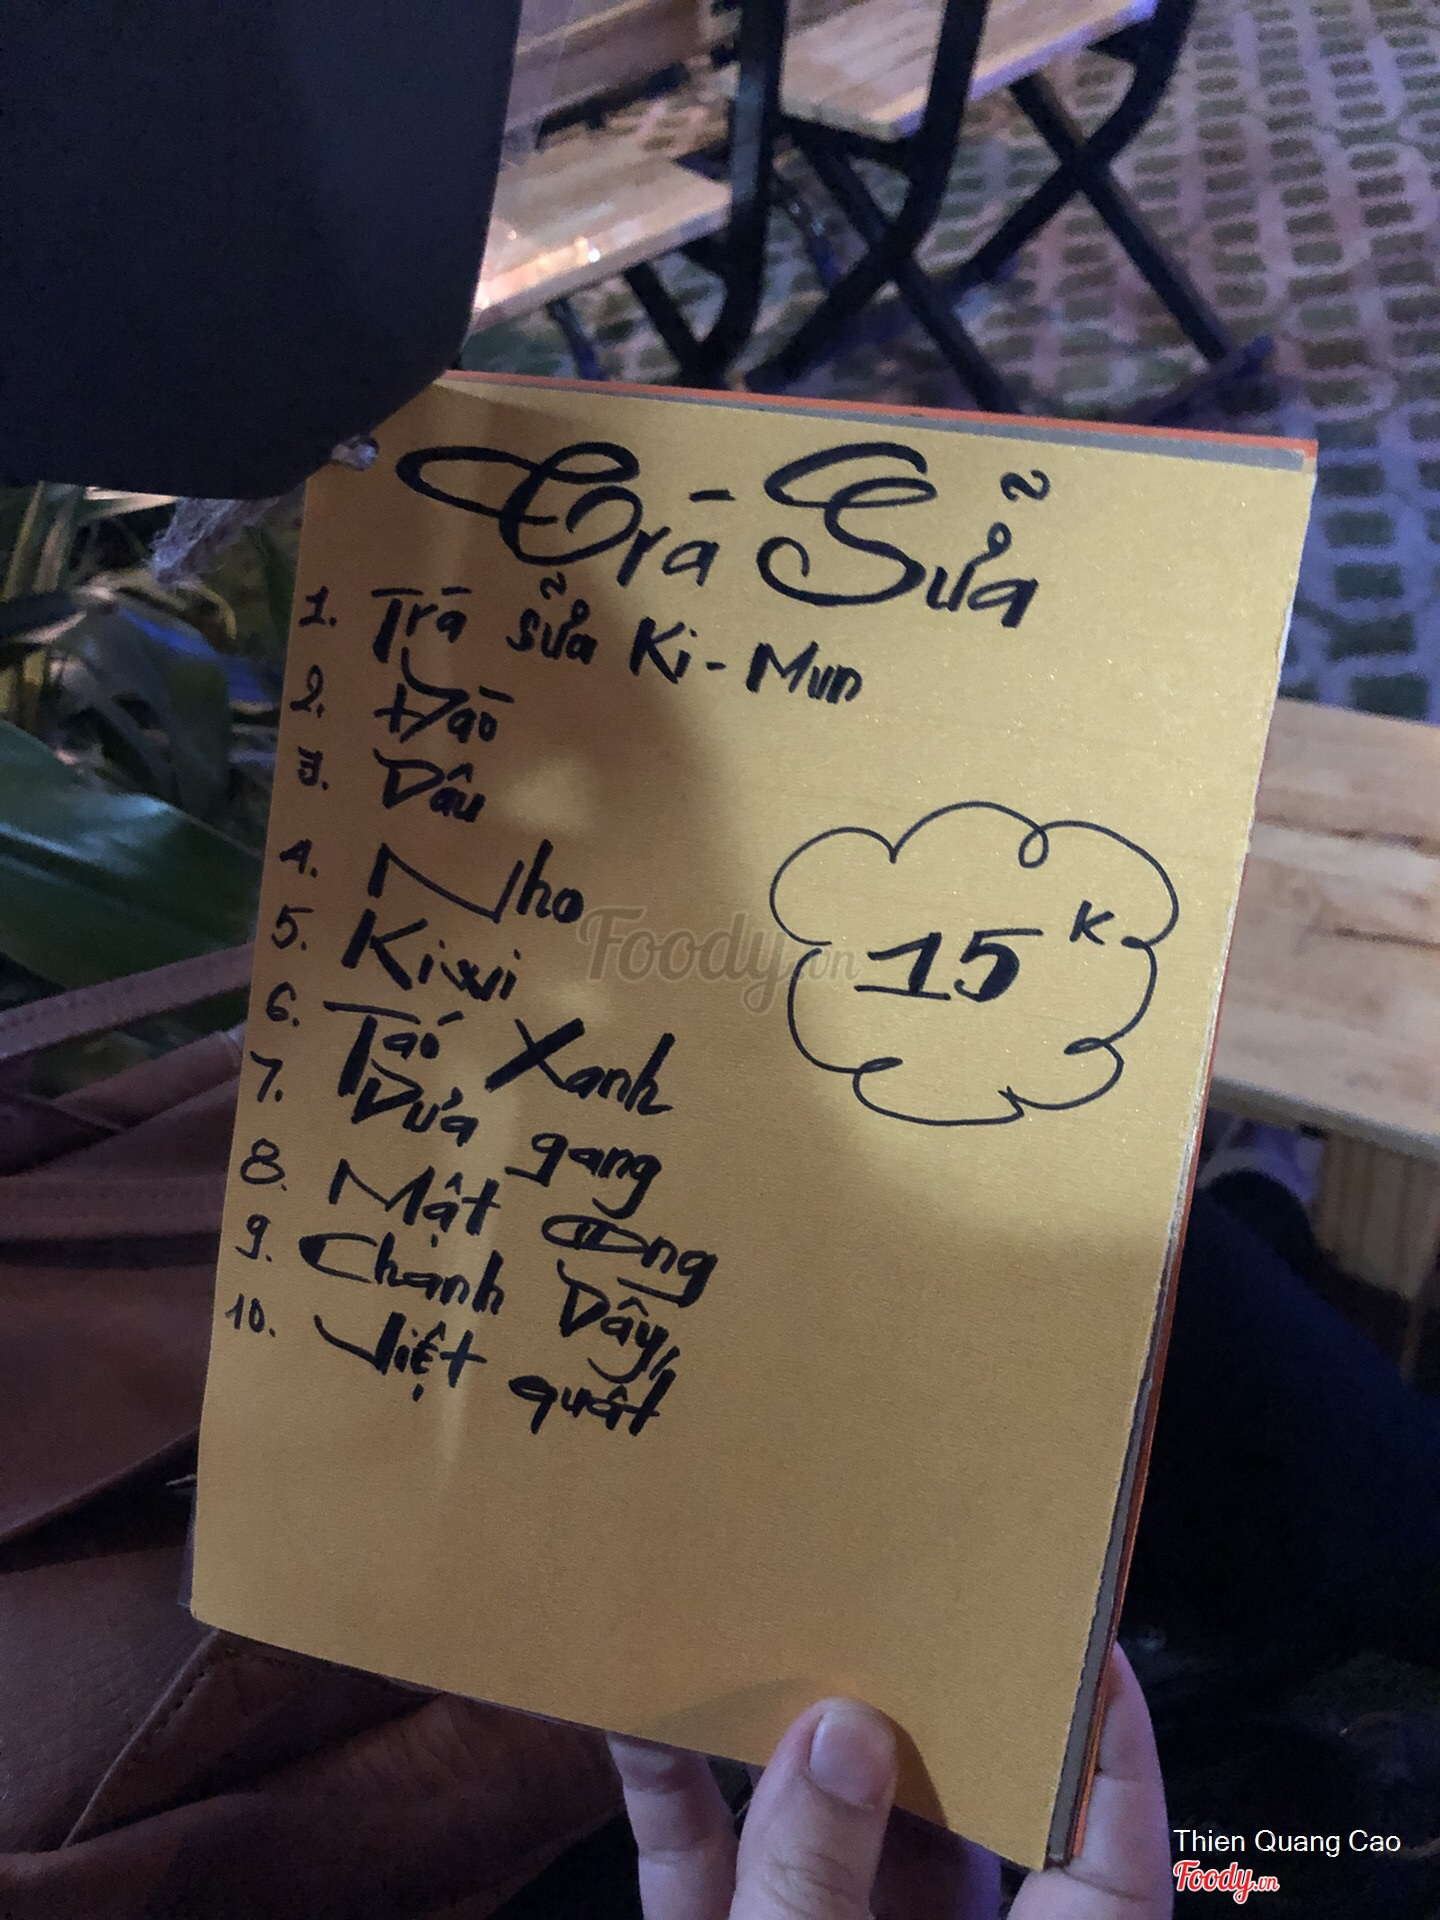 Trà Sữa
1. Trà sữa Ki-Mun
2. Đào
3. Dâu
4. Nho
5. Kiwi
15 K
6. Táo Xanh
7. Dưa gang
8. Mật Ong
9. Chanh Dây
10. Việt quất
Foody.vn
Thien Quang Cao
Foody.vn